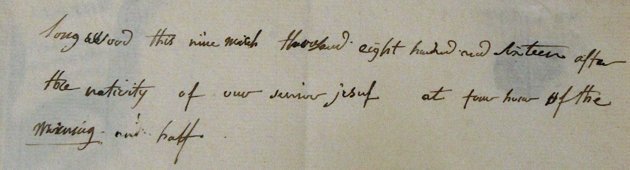 longwood this nine thousand eight hundred and sixteen after
the nativity of our jesus at four hour of the
morning and half.